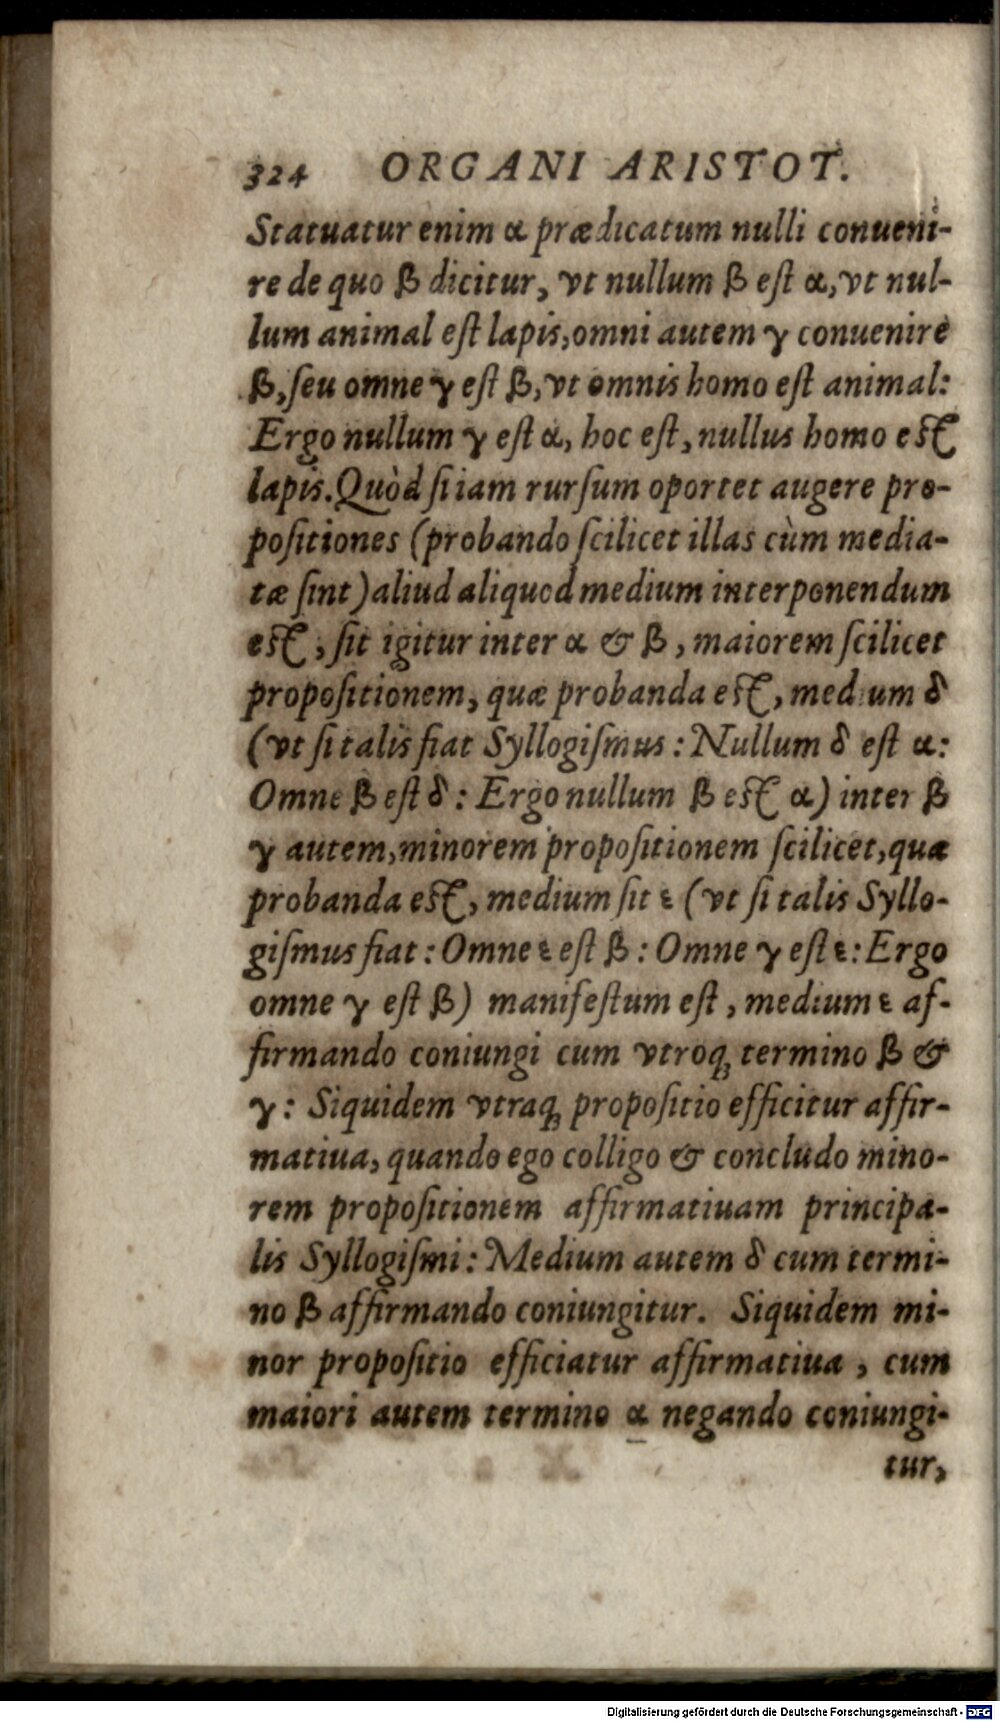 324 ORGANI ARISTOT.
Statuatur enim α prædicatum nulli conueni-
re de quo β dicitur, vt nullum β est α, vt nul-
lum animal est lapis, omni autem γ conuenire
β, seu omne γ est β, vt omnis homo est animal:
Ergo nullum γ est α, hoc est, nullus homo est
lapis. Quòd si iam rursum oportet augere pro-
positiones (probando scilicet illas cùm media-
tæ sint) aliud aliquod medium interponendum
est, sit igitur inter α & β, maiorem scilicet
propositionem, quæ probanda est, medium δ
(vt si talis fiat Syllogismus: Nullum δ est α:
Omne β est δ: Ergo nullum β est α) inter β
γ autem, minorem propositionem scilicet, quæ
probanda est, medium sit ε (vt si talis Syllo-
gismus fiat: Omne ε est β: Omne γ est ε: Ergo
omne γ est β) manifestum est, medium ε af-
firmando coniungi cum vtroq; termino β &
γ: Siquidem vtraq; propositio efficitur affir-
matiua, quando ego colligo & concludo mino-
rem propositionem affirmatiuam principa-
lis Syllogismi: Medium autem δ cum termi-
no β affirmando coniungitur. Siquidem mi-
nor propositio efficiatur affirmatiua, cum
maiori autem termino α negando coniungi-
tur,
Digitalisierung gefördert durch die Deutsche Forschungsgemeinschaft - DFG